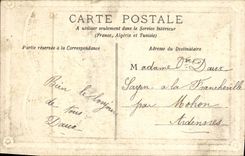 CARTE POSTALE
A utiliser seulement dans le Service Intérieur
(France, Algérie et Tunisie)
Partie réservée à la Correspondance
Adresse du Destinataire
Madame Daux
à la Francheville
par Mohon
Ardennes
Bien le bonjour
de tous
Daux